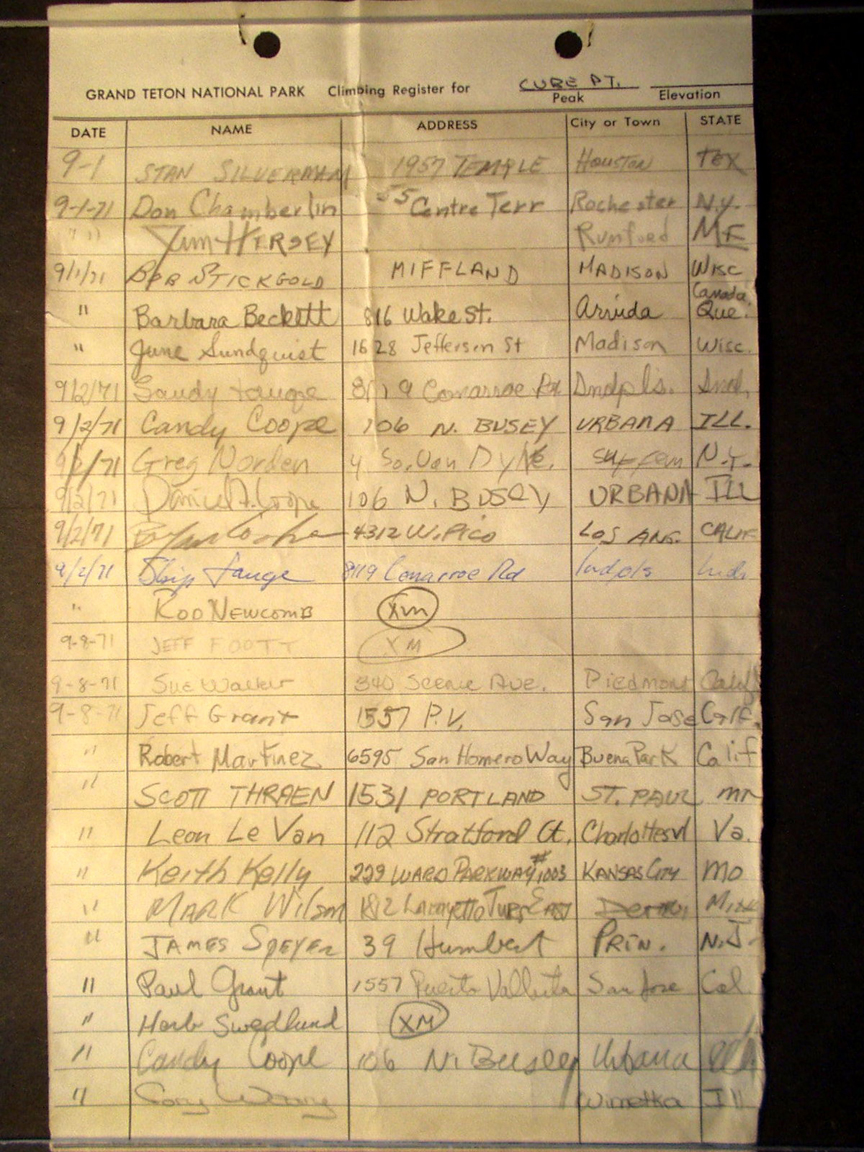 CUBE PT.
GRAND TETON NATIONAL PARK Climbing Register for Peak Elevation
DATE NAME ADDRESS City or Town STATE
9-1 STAN SILVERMAN 1957 TEMPLE Houston TEX
9-1-71 Don Chamberlin 55 Centre Terr Rochester N.Y.
" " Jim HERSEY Rumford ME
9/1/71 BOB STICKGOLD MIFFLAND MADISON WISC
" Barbara Beckett 816 Wake St. Arvida Canada, Que.
" June Sundquist 1628 Jefferson St Madison Wisc.
9/2/71 Sandy 8119 Rd Indpls. Ind.
9/2/71 Candy Coope 106 N. BUSEY URBANA ILL.
9/2/71 Greg Norden 4 So. Van Dyke. Suffern N.Y.
9/2/71 Daniel A. Coope 106 N. BUSEY URBANA ILL
9/2/71 4312 W. PICO LOS ANG. CALIF
9/2/71 Skip 8119 Rd Indpls Ind.
" ROD NEWCOMB XM
9-8-71 JEFF FOOTT XM
9-8-71 Sue Walker 340 Scenic Ave. Piedmont Calif
9-8-71 Jeff Grant 1557 P.V. San Jose Calf.
" Robert Martinez 6595 San Homero Way Buena Park Calif
" SCOTT THRAEN 1531 PORTLAND ST. PAUL MN
" Leon Le Van 112 Stratford Ct. Charlottesvl Va.
" Keith Kelly 229 WARD PARKWAY #1003 KANSAS CITY MO
" MARK Wilson 1812 EAST
" JAMES SPEYER 39 Humbert PRIN. N.J.
" Paul Grant 1557 Puerto Vallarta San Jose Cal
" Herb Swedlund XM
" Candy Coope 106 N. Busey Urbana Ill
" Winnetka Ill